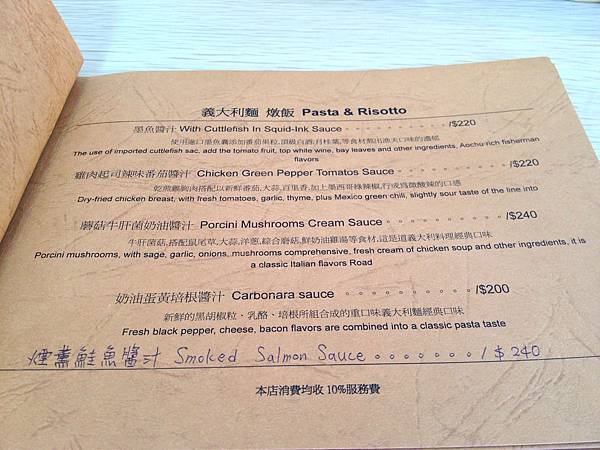 義大利麵 燉飯 Pasta & Risotto
墨魚醬汁 With Cuttlefish In Squid-Ink Sauce。。。。。。。。。/$220
使用進口墨魚囊添加番茄果粒,頂級白酒,月桂葉,等食材熬出漁夫口味的濃郁
The use of imported cuttlefish sac, add the tomato fruit, top white wine, bay leaves and other ingredients, Aochu rich fisherman
flavors
雞肉起司辣味番茄醬汁 Chicken Green Pepper Tomatos Sauce。。。。。。/$220
乾煎雞胸肉搭配以新鮮番茄,大蒜,百里香,加上墨西哥綠辣椒,行成為微酸辣的口感
Dry-fried chicken breast, with fresh tomatoes, garlic, thyme, plus Mexico green chili, slightly sour taste of the line into
蘑菇牛肝菌奶油醬汁 Porcini Mushrooms Cream Sauce。。。。。。。/$240
牛肝菌菇,搭配鼠尾草,大蒜,洋蔥,綜合磨菇,鮮奶油雞湯等食材,這是道義大利料理經典口味
Porcini mushrooms, with sage, garlic, onions, mushrooms comprehensive, fresh cream of chicken soup and other ingredients, it is
a classic Italian flavors Road
奶油蛋黃培根醬汁 Carbonara sauce 。。。。。。。。/$200
新鮮的黑胡椒粒、乳酪、培根所組合成的重口味義大利麵經典口味
Fresh black pepper, cheese, bacon flavors are combined into a classic pasta taste
煙薰鮭魚醬汁 Smoked Salmon Sauce 。。。。。。。/ $240
本店消費均收 10%服務費